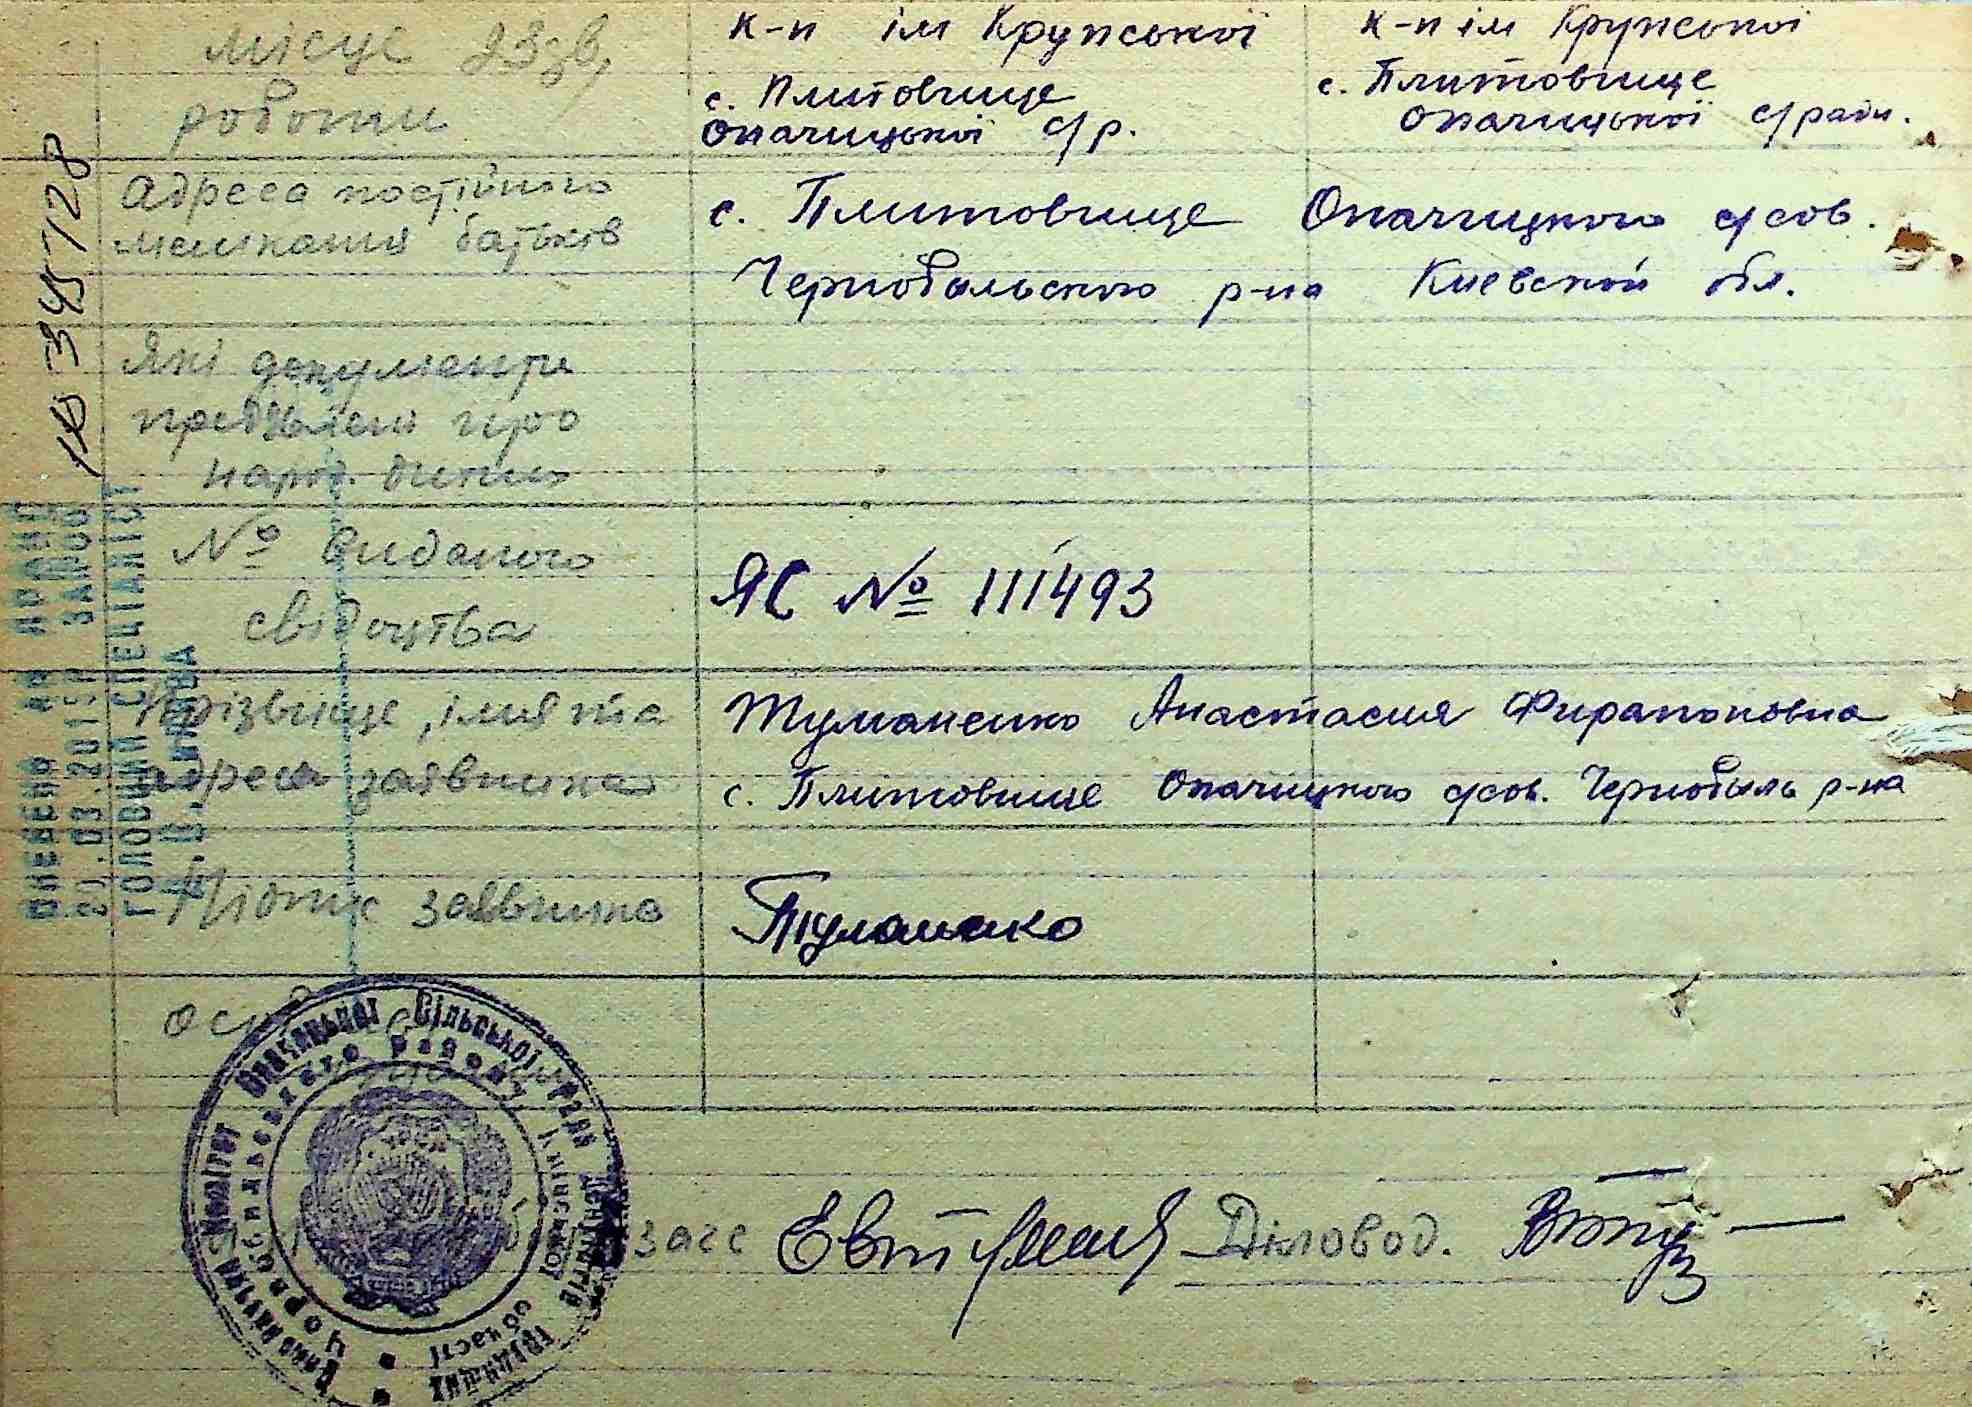 місце
роботи
к-п ім Крупської
с. Плитовище
Опачицької с/р.
к-п ім Крупської
с. Плитовище
Опачицької с/ради.
Адреса постійного
мешкання батьків
с. Плитовище Опачицкого с/сов.
Чернобыльского р-на Киевской обл.
Які документи
предявлені про
народ. дитини
№ виданого
свідоцтва
ЯС № 111493
Прізвище, імя та
адреса заявника
Туманенко Анастасия Фирапоновна
с. Плитовище Опачицкого с/сов. Чернобыль р-на
Підпис заявника
Туманенко
загс
Діловод.
345728
ГОЛОВНИЙ СПЕЦІАЛІСТ
Виконавчий Комітет Опачицької Сільської Ради Депутатів Трудящих
Чорнобильського району Київської області